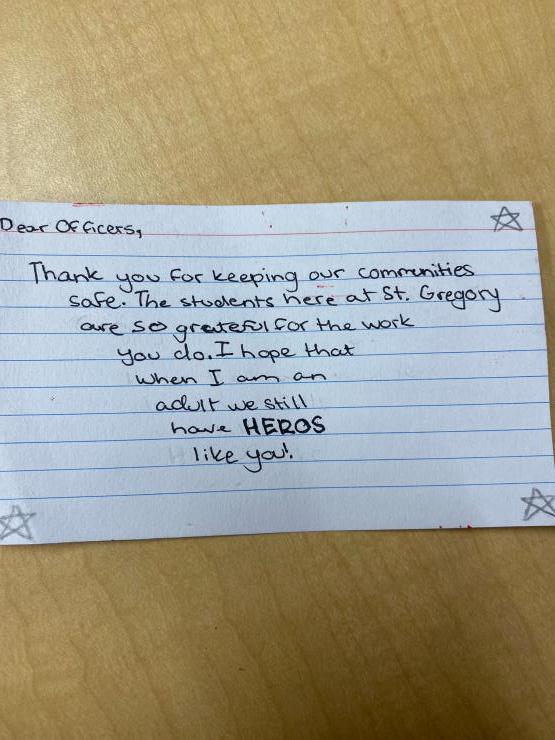 Dear Officers,
Thank you for keeping our communities
safe. The students here at St. Gregory
are so grateful for the work
you do. I hope that
when I am an
adult we still
have HEROS
like you!